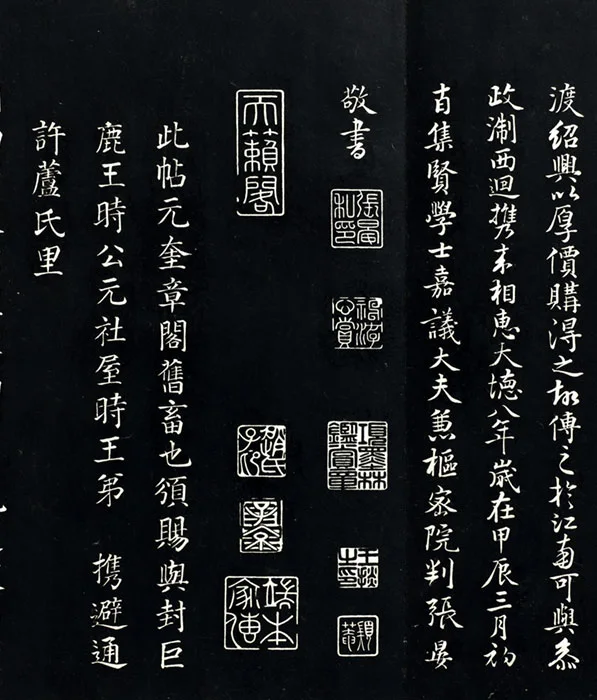 渡紹興以厚價購得之故傳之於江南可與叅
政淛西迴携来相惠大德八年歲在甲辰三月初
吉集賢學士嘉議大夫兼樞密院判張晏
敬書
張晏私印
項墨林鑑賞章
天籟閣
趙氏子昂
此帖元奎章閣舊畜也須賜與封巨
鹿王時公元社屋時王弟 携避通
許蘆氏里